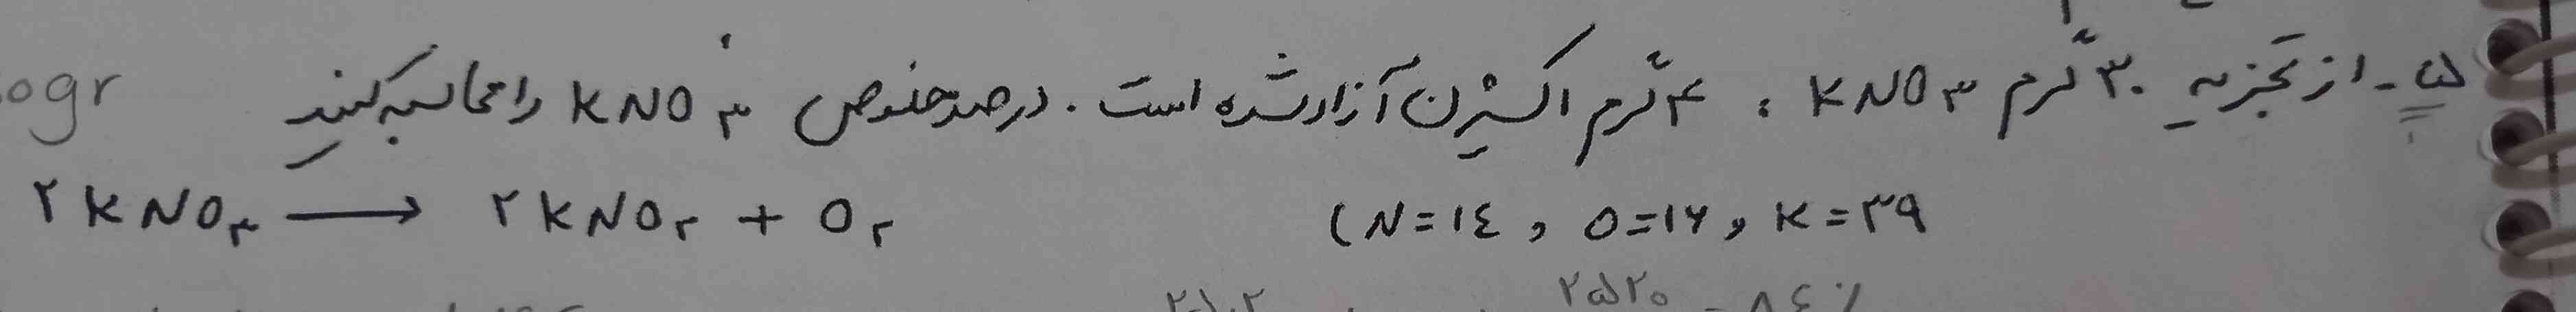 ۵- از تجزیه ۳۰ گرم KNO۳، ۴ گرم اکسیژن آزاد شده است. درصد خلوص KNO۳ را محاسبه کنید
ogr
۲KNO۳ ⟶ ۲KNO۲ + O۲ (N=۱٤ , O=۱۶ , K=۳۹
۲۵۲۰ = ۸٤٪